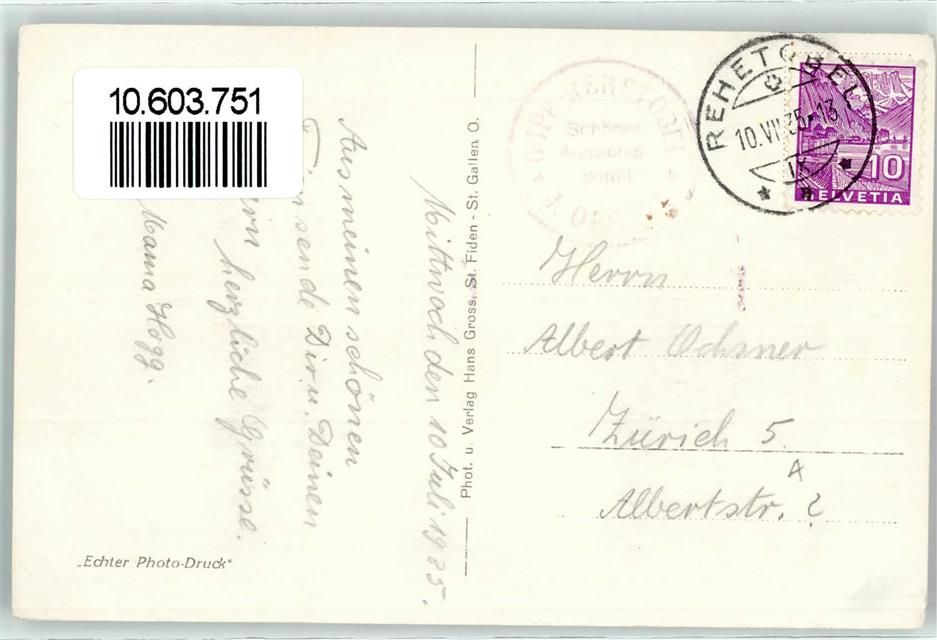 10.603.751
Mittwoch den 10 Juli 1935.
Aus meinen schönen
sende Dir u. Deinen
herzliche Grüsse.
Mama Hogg.
„Echter Photo-Druck“
Phot. u. Verlag Hans Gross, St. Fiden - St. Gallen O.
GUPF-REHETOBEL
Schöner
Aussichts
punkt
REHETOBEL
10.VII.35-13
IX
10
HELVETIA
Herrn
Albert Ochsner
Zürich 5.
4
Albertstr. ?